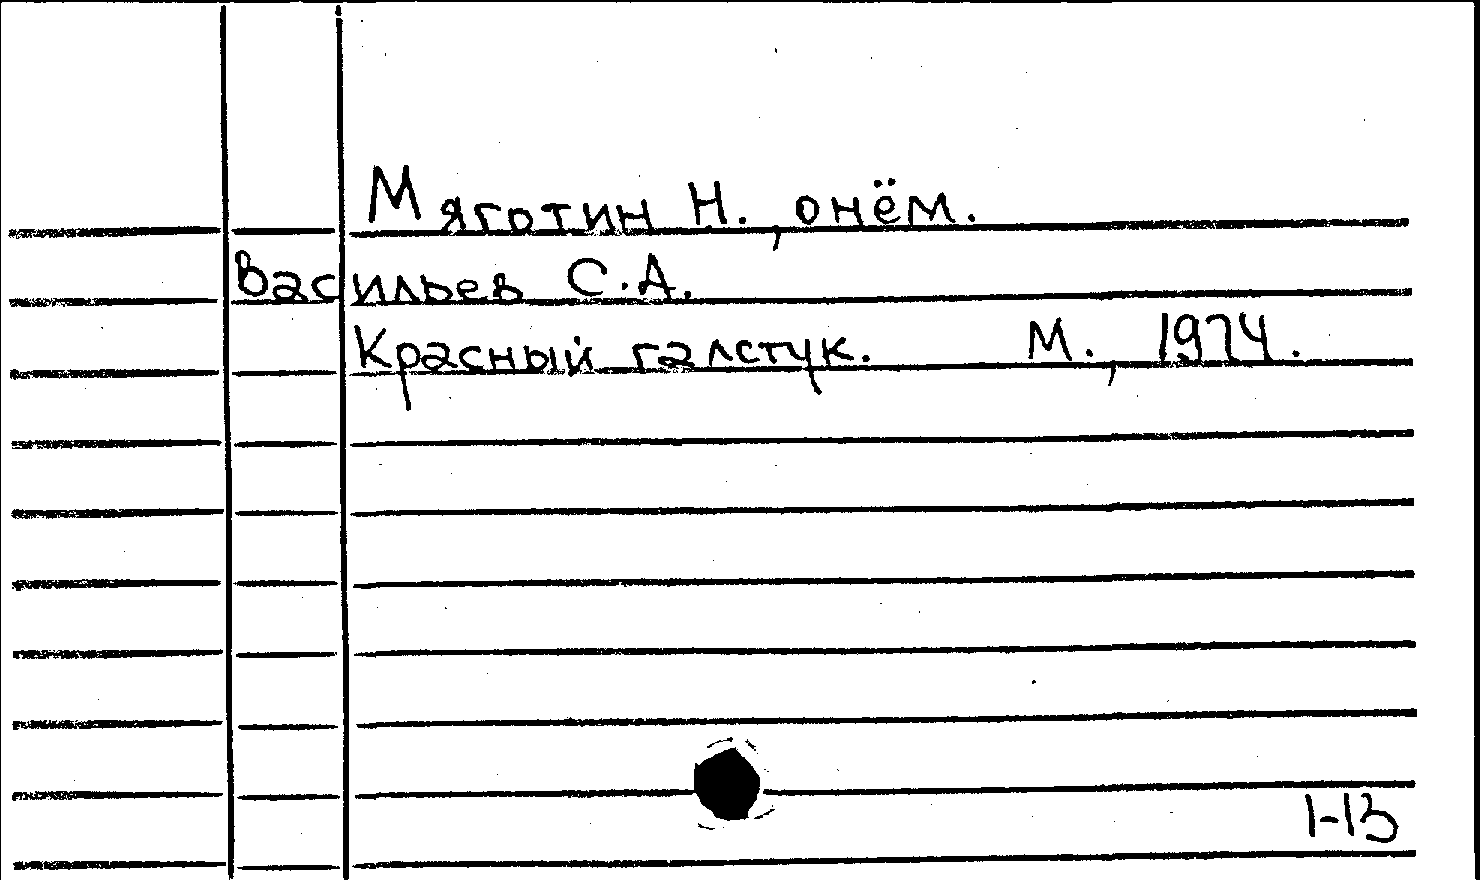 Мяготин Н., о нём.
Васильев С.А.
Красный галстук. М., 1974.
1-13